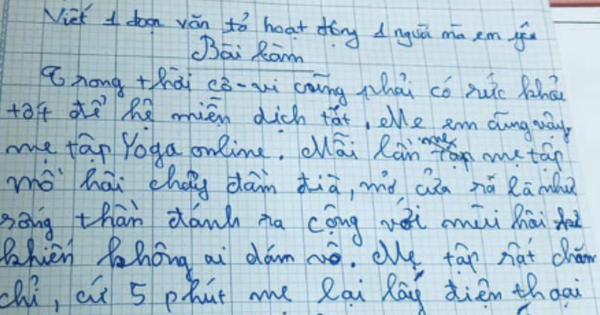 Viết 1 đoạn văn tả hoạt động 1 người mà em yêu
Bài làm
Trong thời cô-vi cũng phải có sức khỏe
tốt để hệ miễn dịch tốt. Mẹ em cũng vậy
mẹ tập Yoga online. Mỗi lần mẹ tập
mồ hôi chảy đầm đìa, mở cửa ra là như
sóng thần đánh ra cộng với mùi hôi
khiến không ai dám vô. Mẹ tập rất chăm
chỉ, cứ 5 phút mẹ lại lấy điện thoại